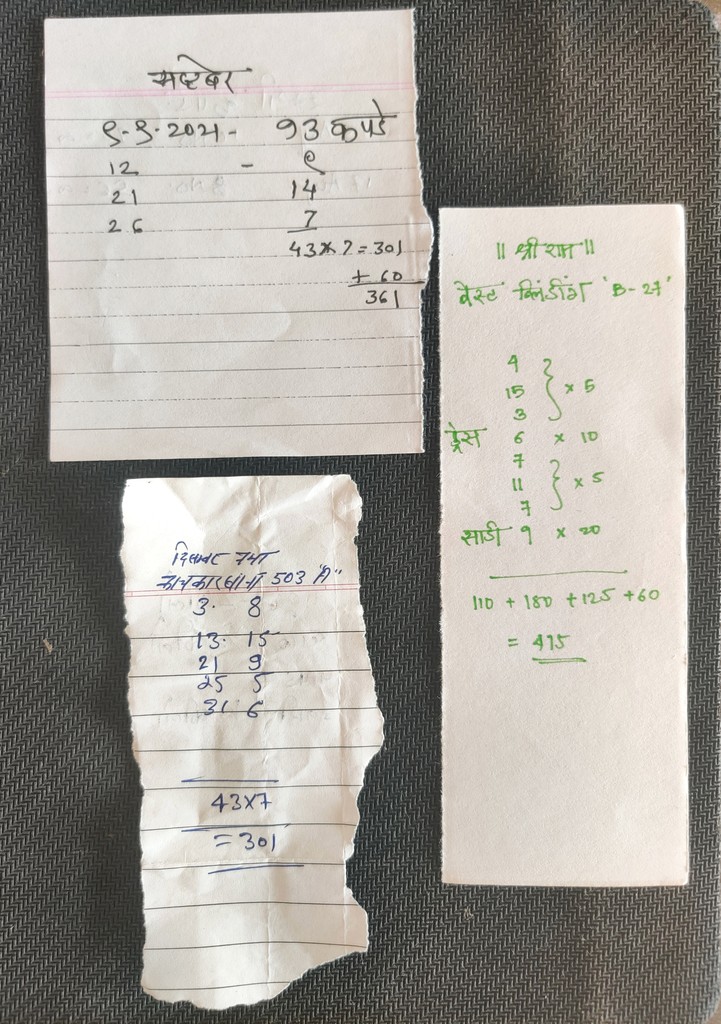 सप्टेबर
९-९-2021 - १3 कपडे
12 - ९
21 14
26 7
43x7=301
+ 60
361
|| श्री राम ||
वेस्ट बिल्डींग 'B-27'
4
15 } x 5
3
ड्रेस 6 x 10
7
11 } x 5
7
साडी 9 x 20
110 + 180 + 125 + 60
= 475
503 "A"
3. 8
13. 15
21 9
25 5
31 6
43x7
= 301